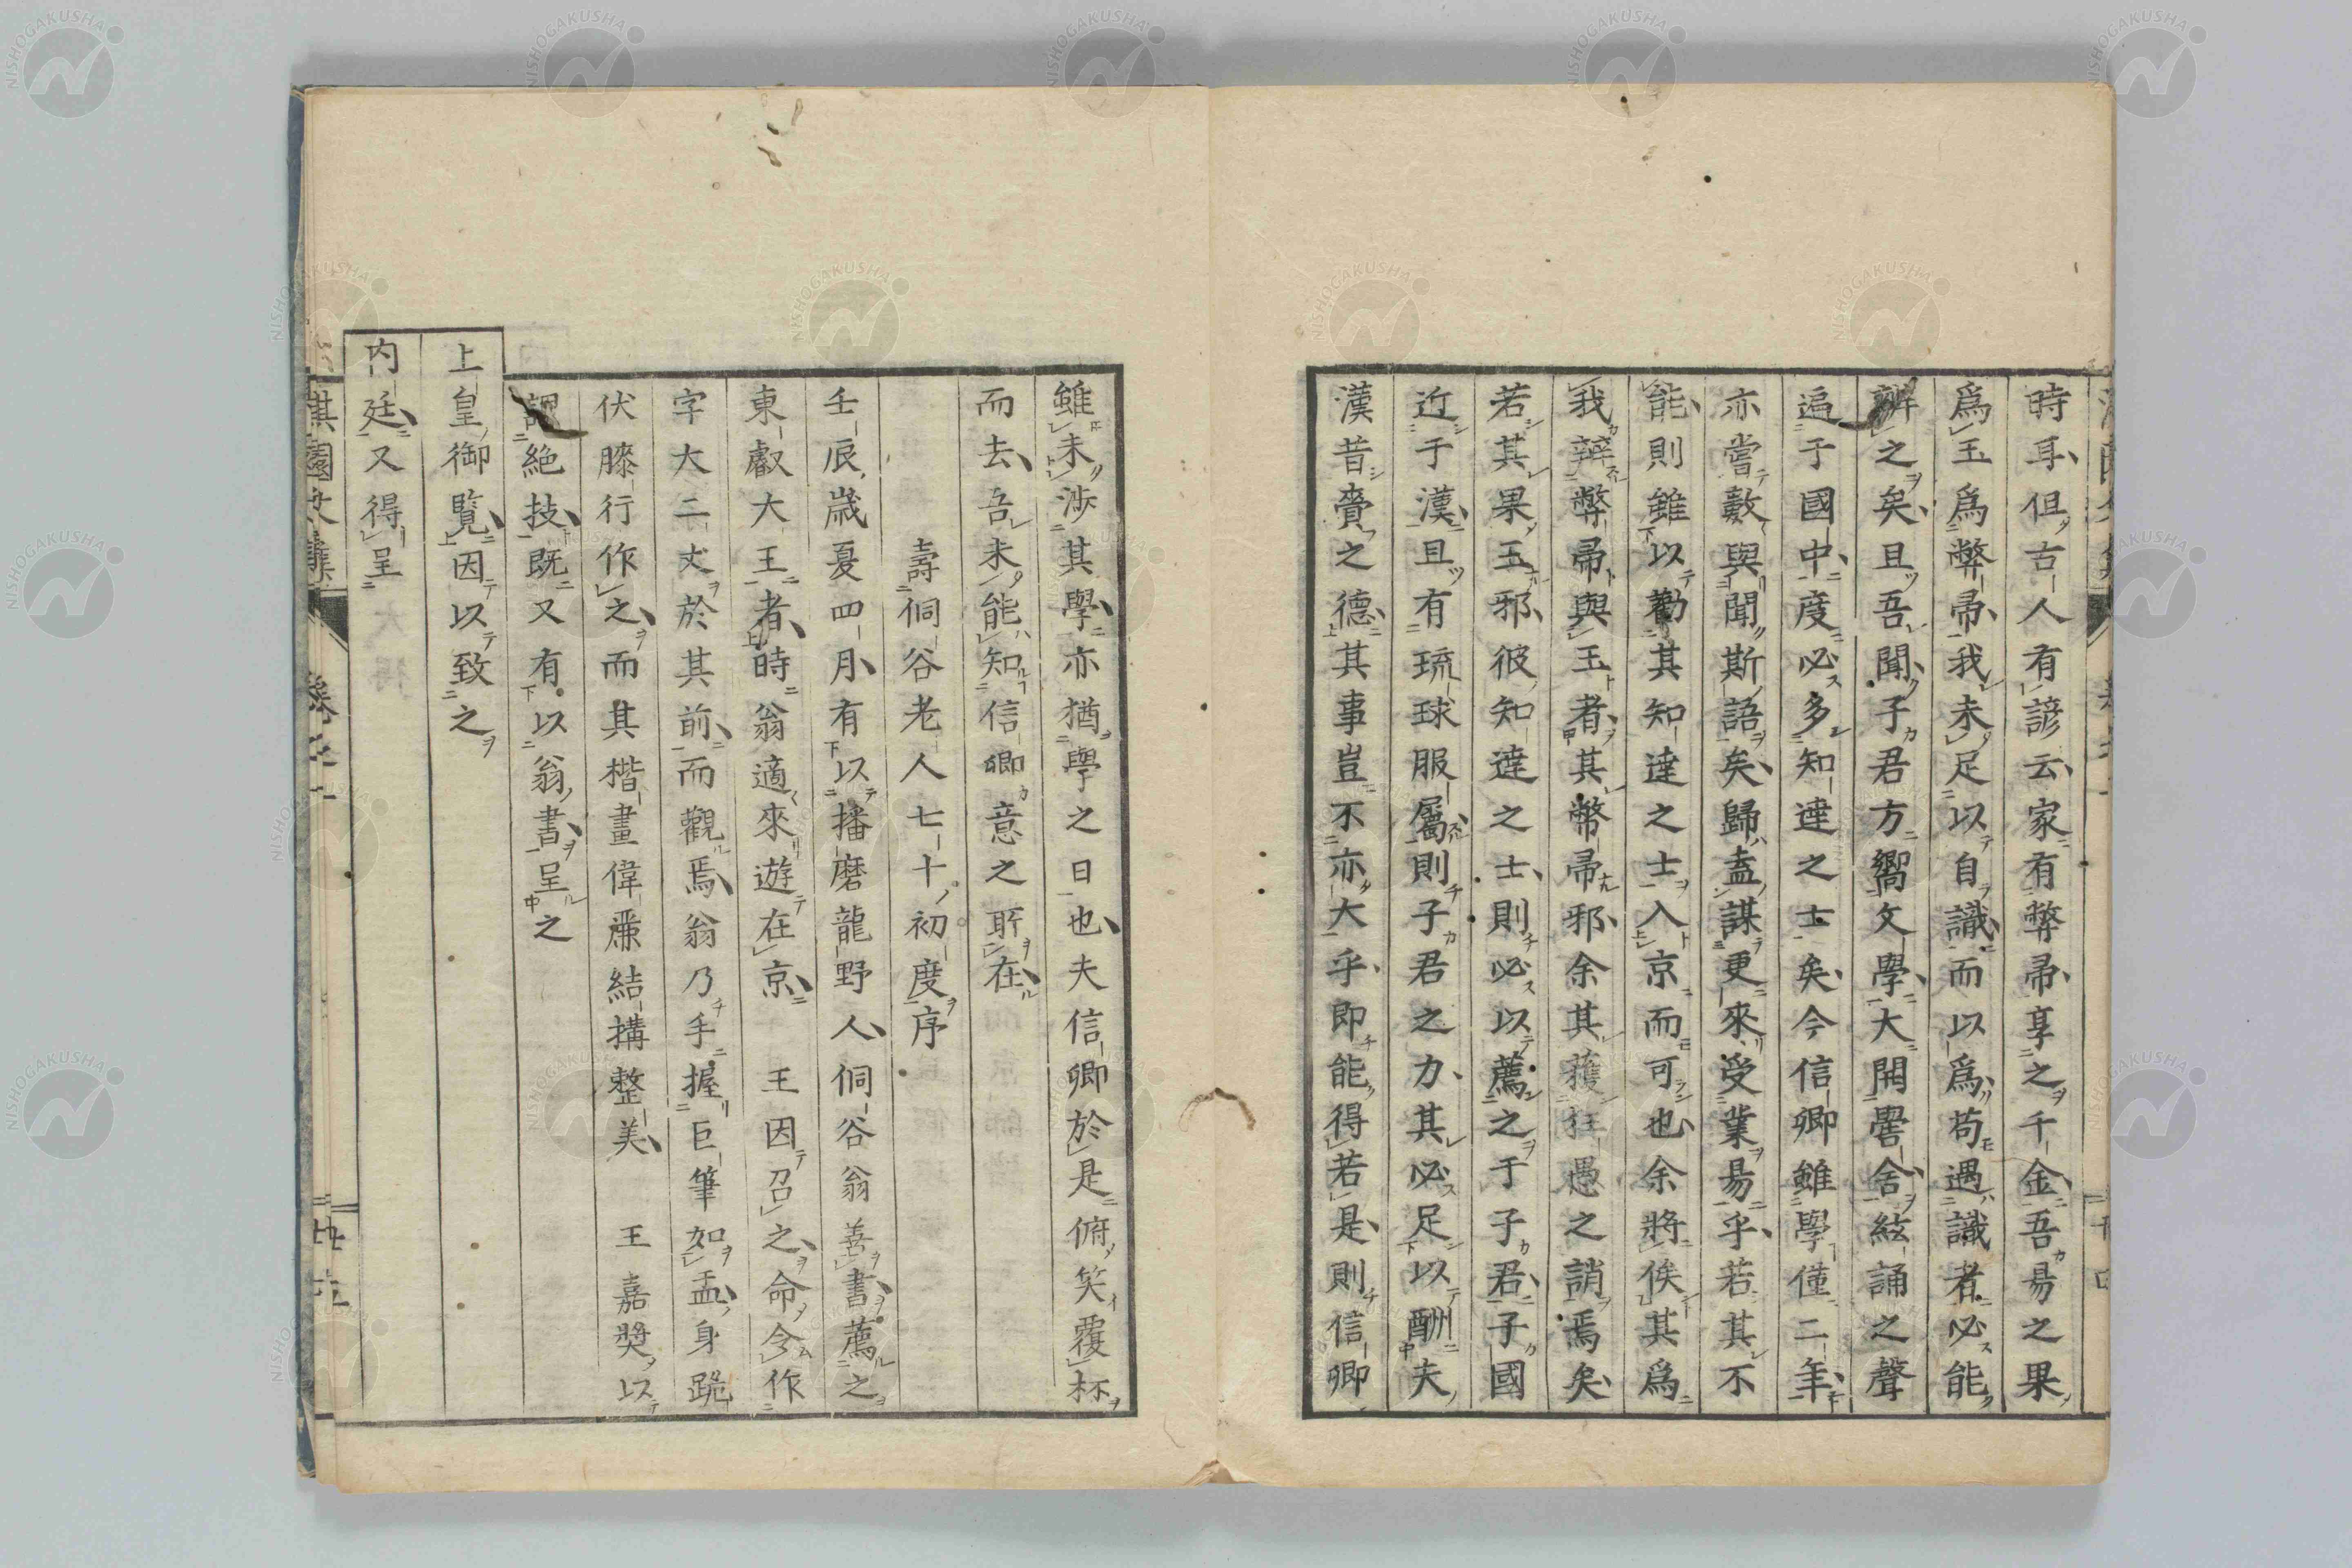 時耳但古人有諺云家有弊帚享之千金吾易之果
爲玉爲弊帚我未足以自識而以爲苟遇識者必能
辨之矣且吾聞子君方嚮文學大開黌舍絃誦之聲
遍于國中度必多知達之士矣今信卿雖學僅二年
亦嘗數與聞斯語矣歸盍謀更來受業易乎若其不
能則雖以勸其知達之士入京而可也余將俟其爲
我辨弊帚與玉者其幣帚邪余其獲狂愚之誚焉矣
若其果玉邪彼知達之士則必以薦之于子君子國
近于漢且有琉球服屬則子君之力其必足以酬夫
漢昔賚之德其事豈不亦大乎即能得若是則信卿
雖未涉其學亦猶學之日也夫信卿於是俯笑覆杯
而去吾未能知信卿意之所在
壽侗谷老人七十初度序
壬辰歲夏四月有以播磨龍野人侗谷翁善書薦之
東叡大王者時翁適來遊在京 王因召之命令作
字大二丈於其前而觀焉翁乃手握巨筆如盂身跪
伏膝行作之而其楷畫偉肅結搆整美 王嘉奬以
謂絶技既又有以翁書呈之
上皇御覽因以致之
内廷又得呈
淇園文集